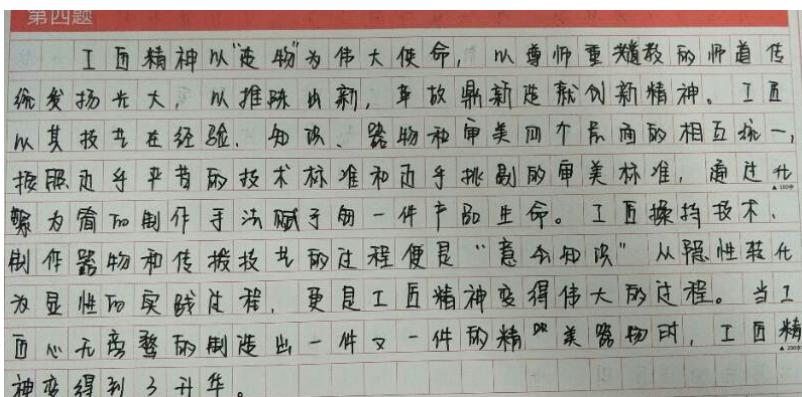 第四题
工匠精神以“造物”为伟大使命，以尊师重教的师道传
统发扬光大，以推陈出新，革故鼎新造就创新精神。工匠
以其技艺在经验、知识、器物和审美四个层面的相互统一，
按照近乎平苛的技术标准和近乎挑剔的审美标准，通过化
繁为简的制作手法赋予每一件产品生命。工匠操持技术、
制作器物和传授技艺的过程便是“意会知识”从隐性转化
为显性的实践过程，更是工匠精神变得伟大的过程。当工
匠心无旁骛的制造出一件又一件的精美器物时，工匠精
神变得到了升华。